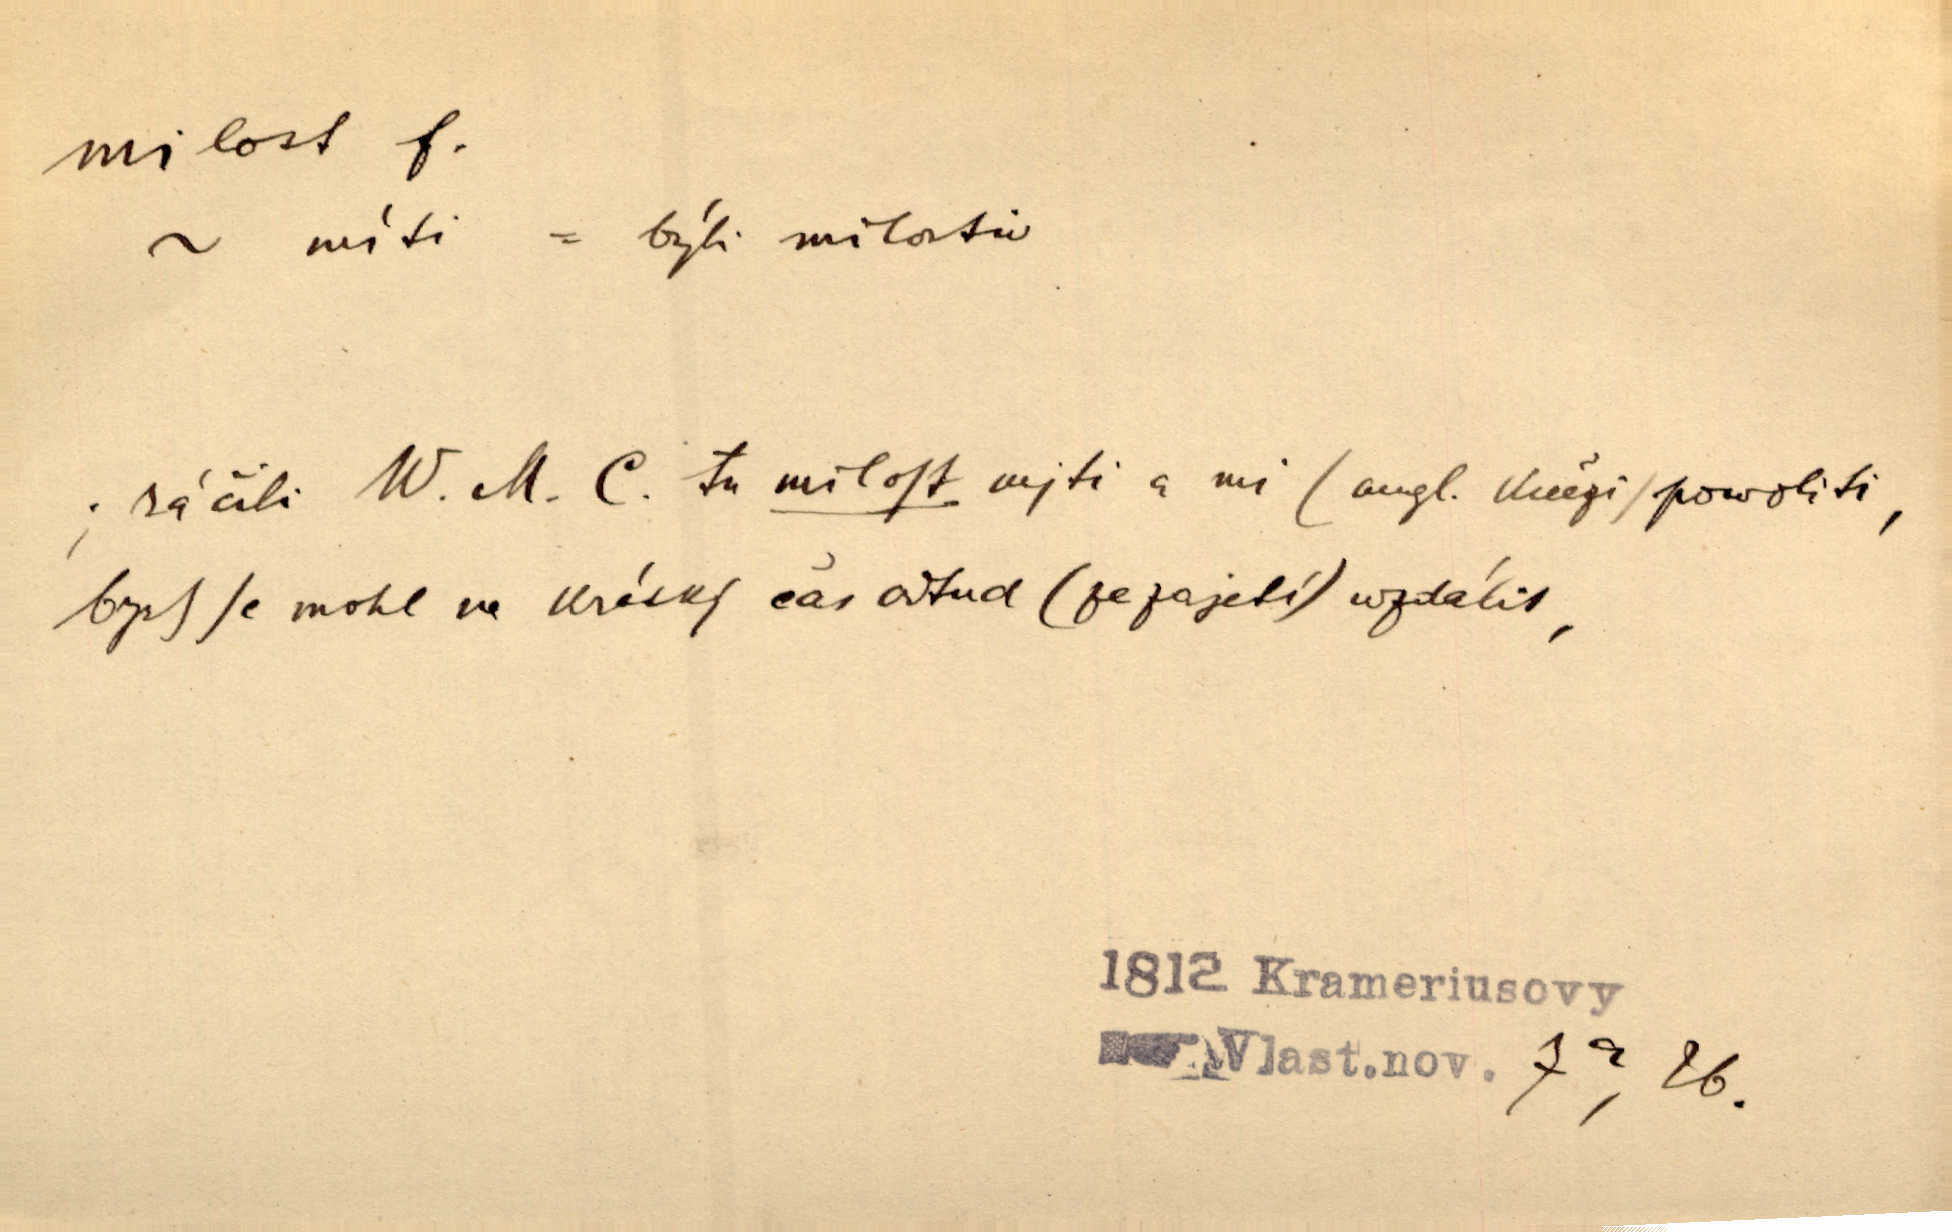 milost f.
~ míti = býti milostiv
; ráčili W. M. C. tu milost mjti a mi (angl. kněži) powoliti,
bych se mohl na krátký čas odtud (ze zajetí) wzdálit,
1812 Krameriusovy
Vlast.nov. 7a, 26.